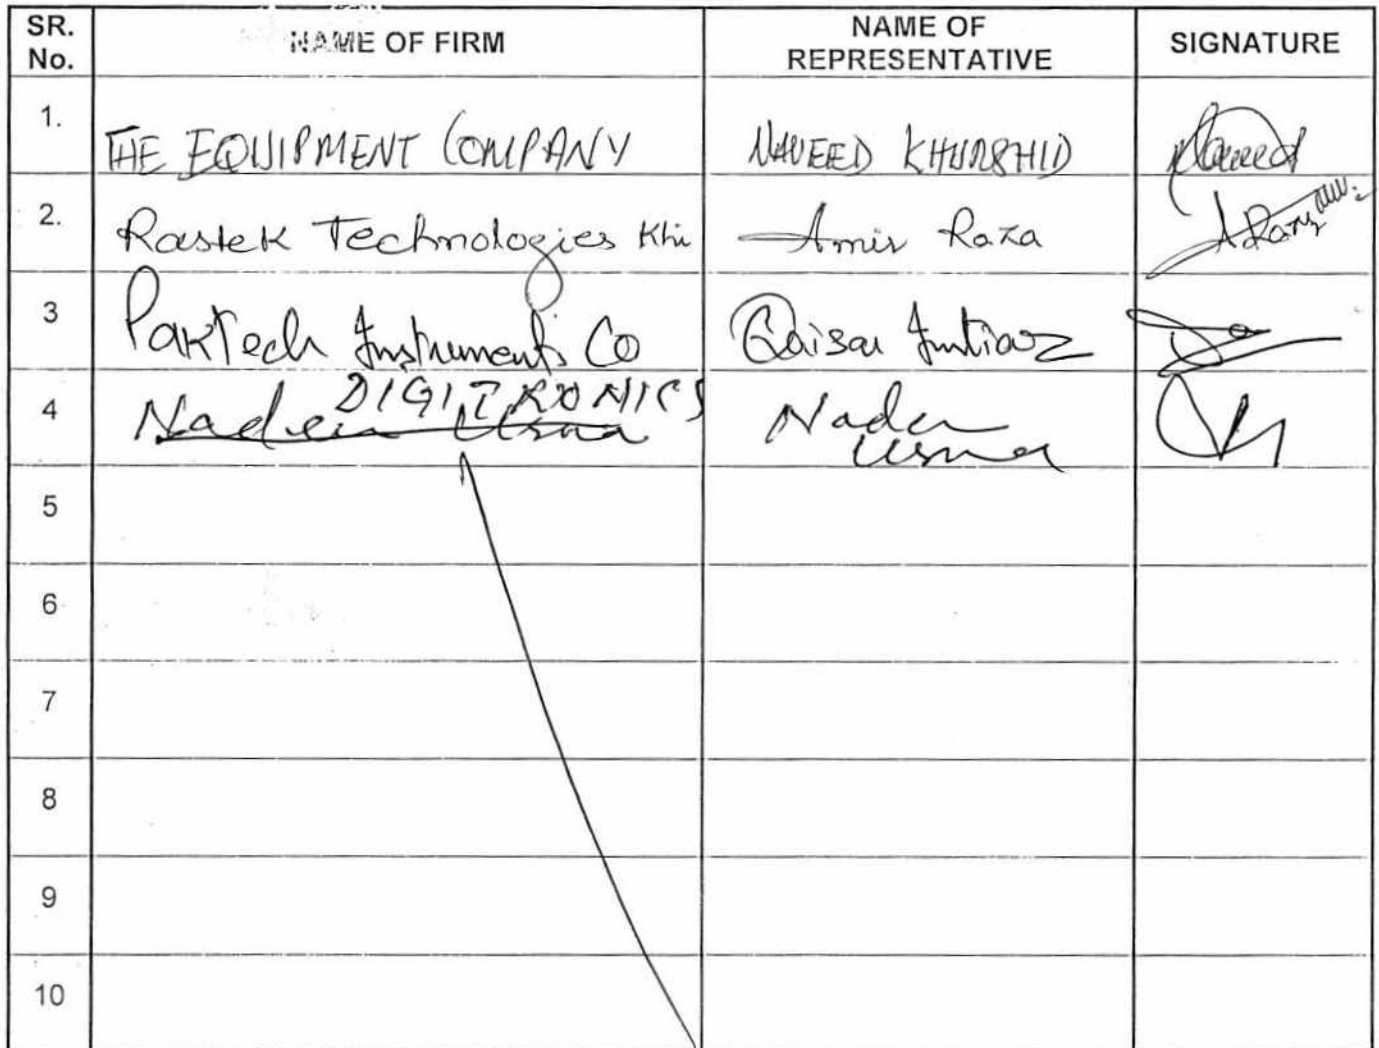 SR. No. NAME OF FIRM NAME OF REPRESENTATIVE SIGNATURE
1. THE EQUIPMENT COMPANY NAVEED KHURSHID Naveed
2. Rastek Technologies Khi Amir Raza ARaza
3 PakTech Instruments Co Qaisar Imtiaz
DIGITRONICS
4 Nadeem Nadeem
5
6
7
8
9
10